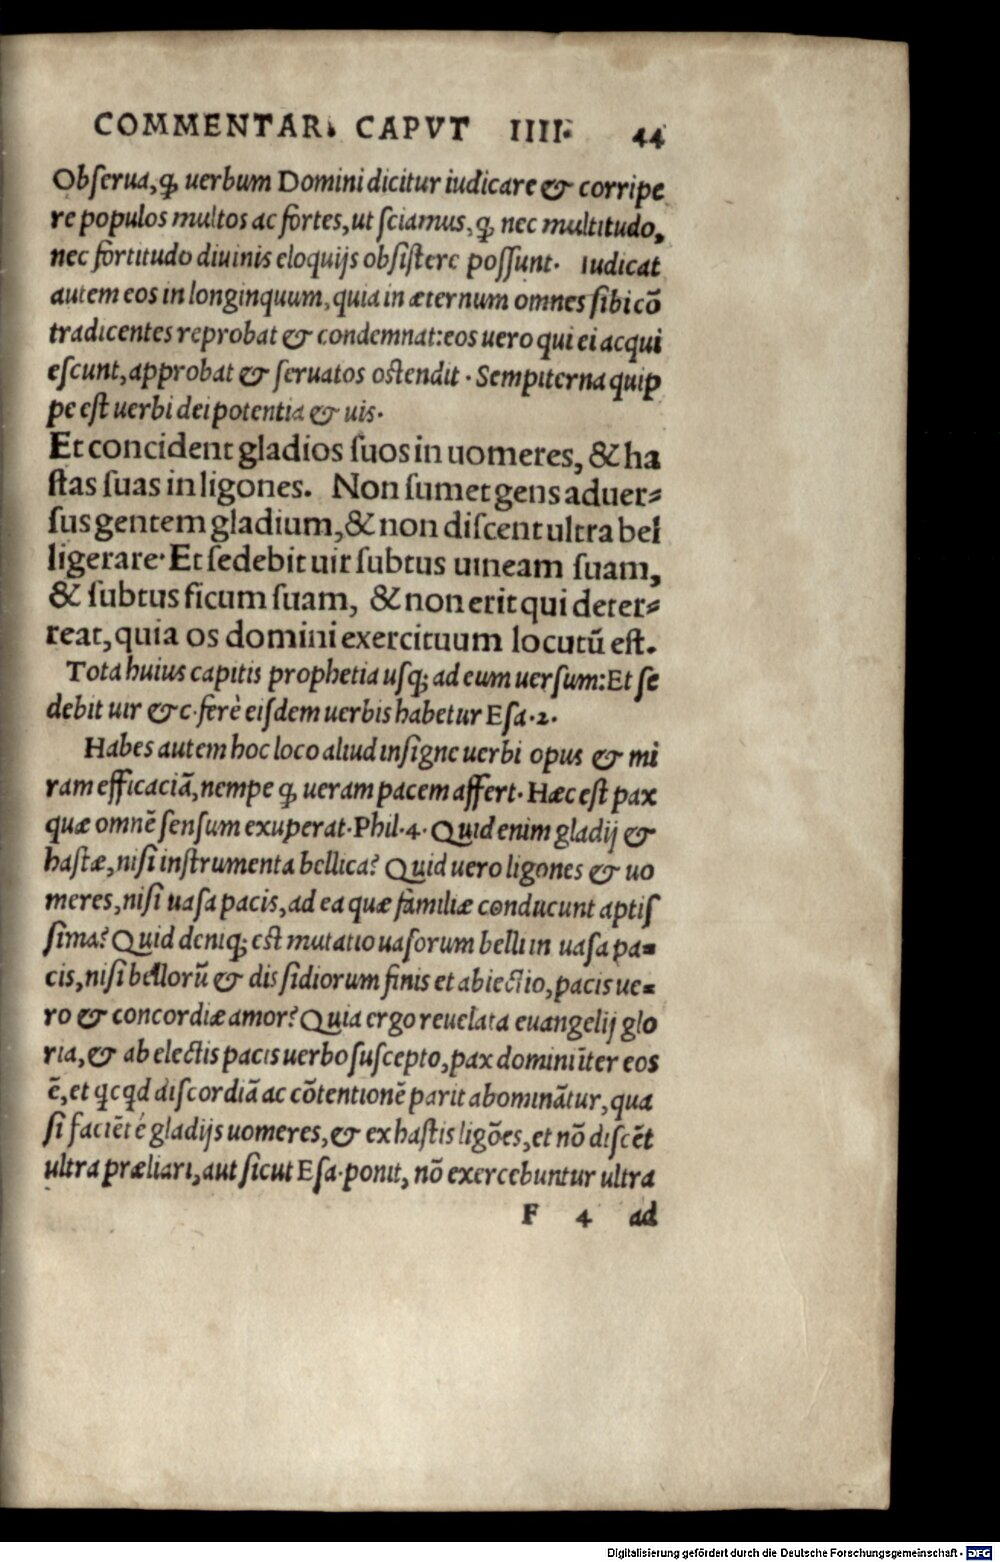 COMMENTAR. CAPVT IIII. 44
Obſerua, ꝙ uerbum Domini dicitur iudicare & corripe
re populos multos ac fortes, ut ſciamus, ꝙ nec multitudo,
nec fortitudo diuinis eloquijs obſiſtere poſſunt. Iudicat
autem eos in longinquum, quia in æternum omnes ſibi cō
tradicentes reprobat & condemnat: eos uero qui ei acqui
eſcunt, approbat & ſeruatos oſtendit. Sempiterna quip
pe eſt uerbi dei potentia & uis.
Et concident gladios ſuos in uomeres, & ha
ſtas ſuas in ligones. Non ſumet gens aduer⸗
ſus gentem gladium, & non diſcent ultra bel
ligerare. Et ſedebit uir ſubtus uineam ſuam,
& ſubtus ficum ſuam, & non erit qui deter⸗
reat, quia os domini exercituum locutū eſt.
Tota huius capitis prophetia uſq; ad eum uerſum: Et ſe
debit uir &c. ferè eiſdem uerbis habetur Eſa. 2.
Habes autem hoc loco aliud inſigne uerbi opus & mi
ram efficaciā, nempe ꝙ ueram pacem affert. Hæc eſt pax
quæ omnē ſenſum exuperat. Phil. 4. Quid enim gladij &
haſtæ, niſi inſtrumenta bellica? Quid uero ligones & uo
meres, niſi uaſa pacis, ad ea quæ familiæ conducunt aptiſ
ſima? Quid deniq; eſt mutatio uaſorum belli in uaſa pa⸗
cis, niſi bellorū & dis ſidiorum finis et abiectio, pacis ue⸗
ro & concordiæ amor? Quia ergo reuelata euangelij glo
ria, & ab electis pacis uerbo ſuſcepto, pax domini īter eos
ē, et qcqd diſcordiā ac cōtentionē parit abominātur, qua
ſi faciēt è gladijs uomeres, & ex haſtis ligōes, et nō diſcēt
ultra præliari, aut ſicut Eſa. ponit, nō exercebuntur ultra
F 4 ad
Digitalisierung gefördert durch die Deutsche Forschungsgemeinschaft - DFG